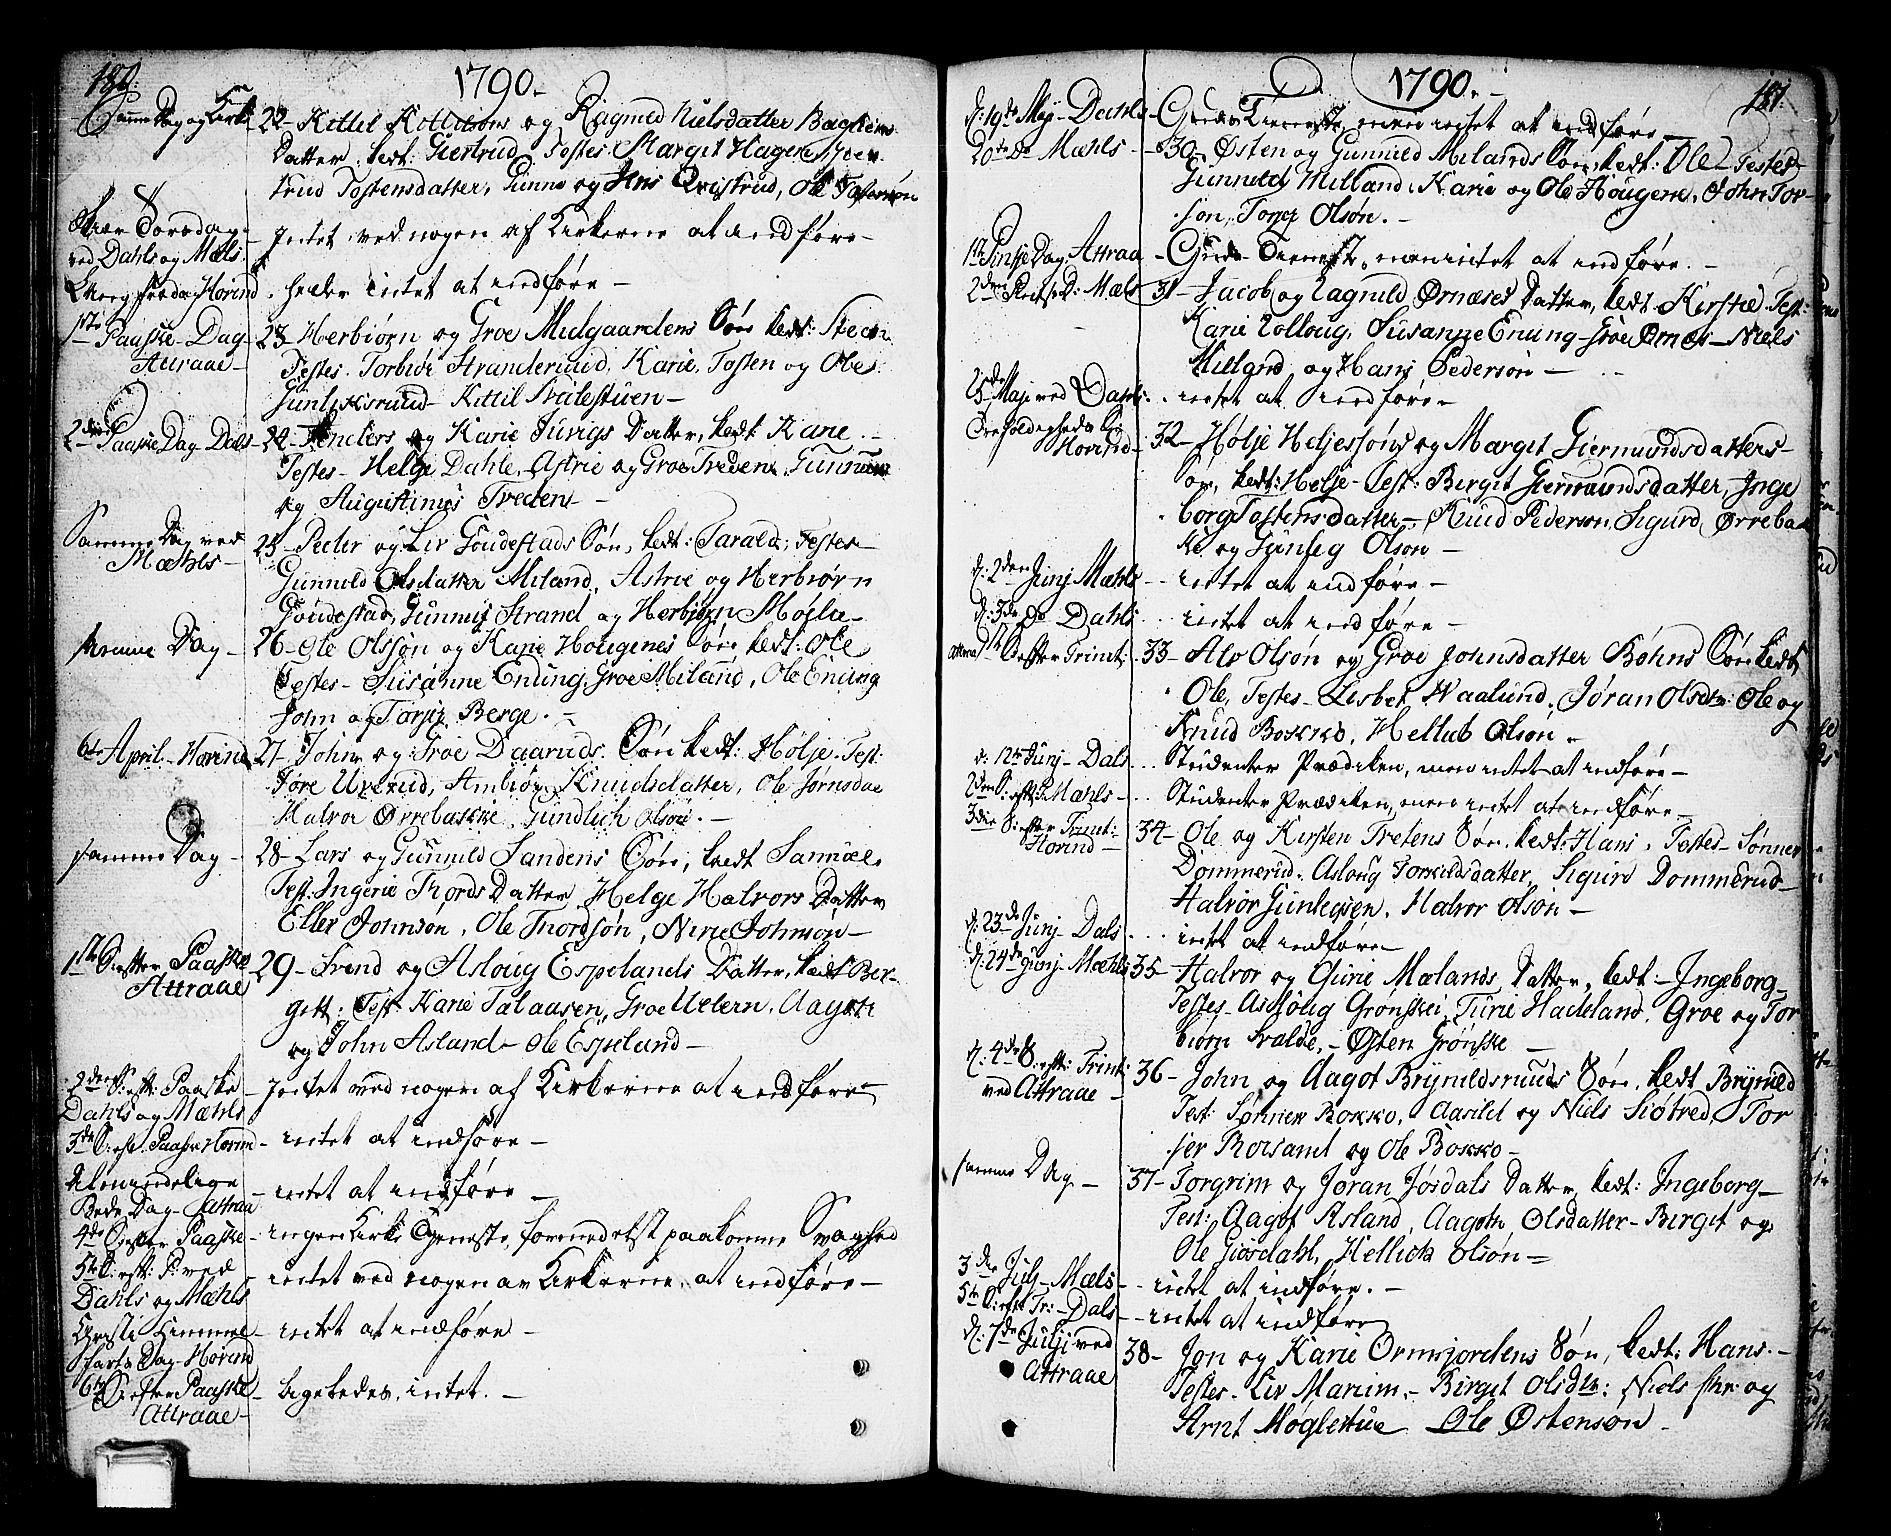 1790.
Samme Dag og Kirke 22- Kittil Kittilsøns og Ragnild Nielsdatter
Datter, kedt: Giertrud, Testes Margit Hagene,
Tostensdatter, Gunne og Jens Qvistrud, Ole
Skiær Torsdag
ved Dahls og Mæls - Intet ved nogen af Kirkerne at indføre-
Lang fredag Hovind - heller intet at indføre-
1ste Paaske-Dag
Attraae- 23- Herbiørn og Groe Mulgaardens Søn kedt: Steen
Testes. Torbiør Stranderuud, Karie, Tosten og Ole
Gunleiksruud- Kittil Straalestuen-
2den Paaske Dag-Dals- 24- Anders og Karie Juvigs Datter, kedt Karie.-
Testes- Helge Dahle, Astrie og Groe Treden, Gunnuu
og Augustinus Treden-
Samme Dag ved
Mæhls- 25- Peder og Liv Goudestads Søn, kedt: Tarald; Testes-
Gunnild Olsdatter Miland, Astrie og Herbiørn
Goudestad, Gunnuf Strand og Herbiørn Møgla-
samme Dag- 26- Ole Olssøn og Karie Hougenes Søn kedt: Ole
Testes- Susanne Enung, Groe Miland, Ole Enung
John og Torgir Berge.-
6te April-Hovind 27- John og Groe Daaruds Søn kedt: Hølje-Test:
Tore Urerud, Ambiør Knudsdatter, Ole Jørnsdae
Halvor Ørrebakke, Gundlich Olsøn.-
samme Dag- 28- Lars og Gunnild Sandens Søn, kedt Samuel-
Test: Ingerie Thords Datter, Helge Halvors Datter
Eller Johnsøn, Ole Thordsøn, Nirie Johnsøn-
1ste S: efter Paaske
Attraae 29- Svend og Asloug Espelands Datter, kedt Ber-
gett: Test Karie Talaasen, Groe Uelern, Aagoth
og John Asland- Ole Espeland-
2den S: eft: Paaske
Dahls og Mæhls Intet ved nogen af Kirkerne at indføre-
3de S: eft: Paaske Hovind- intet at indføre-
Almindelige
Bede Dag-Attraa - intet at indføre-
4de S: efter Paaske- ingen Kirke Tjeneste, formedelst paakomne Svaghed
5te S: eft: P: ved
Dahls og Mæhls intet ved nogen av Kirkerne at indføre-
Christi Himmel-
farts Dag-Hovind intet at indføre-
6te S: efter Paaske-
Attraae- ligeledes intet.-
1790.-
181.
d: 19de Maj-Dahls- Guds Tieneste, men intet at indføre-
20de Do Mæhls- -30- Østen og Gunnild Milands Søn kedt: Ole-Testes-
Gunnild Milland, Karie og Ole Hougene, John Tor-
søn, Torgi Olsøn.-
1ste Pinsse Dag Attraa - Guds Tieneste, men intet at indføre.-
2den Pintse D: Mæls 31- Jacob og Ragnild Ørnæses Datter, kedt- Kirstie Test:
Karie Rolloug, Susanne Enung-Groe Ørnæs-Niels
Milland, og Hans Pedersøn-
25de Maj ved Dahls .. intet at indføre-
Hovind- 32- Hølje Heljesøns og Margit Giermundsdatters-
Søn, kedt: Helje-Test: Birgit Giermundsdatter, Inge
borg Tostensdatter- Knud Pedersøn, Sigurd Ørreba
ke og Gunleg Olsøn-
d: 2den Junj Mæhls - intet at indføre-
d: 3de Do Dahls .. intet at indføre-
Attraa 1ste S: efter Trinit. 33- Alv Olsøn og Groe Johnsdatter Bøhns Søn kedt
Ole, Testes- Lisbet Waalund, Jøran Olsdtr: Ole og
Knud Bokko, Hellub Olsøn-
d: 12te Junj- Dals ... Studenter Prædiken, men intet at indføre-
2den S: eft: T: Mæhls- ... Studenter Prædiken, men intet at indføre-
3die S: efter Trinit:
Hovind- 34- Ole og Kirsten Tretens Søn, kedt: Hans, Testes- Sønner
Dommerud, Asloug Torkildsdatter, Sigurd Dommerud-
Halvor Gunlegsen, Halvor Olsøn-
d: 23de Junj Dals ... intet at indføre-
d: 24de Junj-Mæhls 35- Halvor og Gurie Mælands Datter, kedt- Ingeborg-
Testes- Assløug Grønskei, Turie Hadeland, Groe og Tor
biørn Svalde,- Østen Grønske-
d: 4de S: eft: Trinit:
ved Attraae- 36- John og Aagot Brynildsruuds Søn, kedt Brynild
Test: Sønnev Bokko, Aasild og Niels Siøtred, Tor
ser Roisamt og Ole Bokko-
samme Dag- 37- Torgrim og Jøran Jøsdals Datter, kedt: Ingeborg-
Test: Aagot Asland, Aagoth Olsdatter- Birgit og
Ole Giøsdahl, Hellich Olsøn-
3die Julj-Mæls- - intet at indføre.-
5te S: eft Tr:-Dals- - intet at indføre
d: 7de Julj ved
Attraae 38- Jon og Karie Ormsjordens Søn, kedt: Hans.-
Testes- Liv Marium,- Birgit Olsdtr: Niels Str: og
Arnt Møglestue Ole Østensøn-